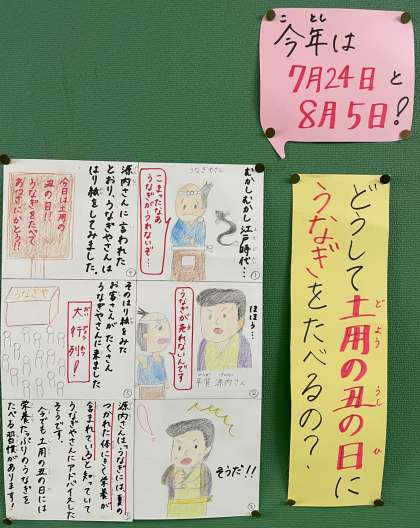 今年は
ことし
7月24日と
8月5日!
どうして土用の丑の日に
どよう うし ひ
うなぎをたべるの?
むかしむかし江戸時代…
えどじだい
うなぎやさん
こまったなあ
うなぎがうれないぞ…
①
ほほう…
うなぎが売れないんです
平賀源内さん
②
そうだ!!
③
源内さんに言われた
とおり、うなぎやさんは
はり紙をしてみました。
今日は土用の
丑の日!!
うなぎをたべて
④
そのはり紙をみた
お客さんがたくさん
うなぎやさんに来ました
うなぎや
大行列!
源内さんは、「うなぎには、夏の
つかれた体にきく栄養が
含まれている」と知っていて
うなぎやさんにアドバイスした
そうです。
今でも土用の丑の日には
栄養たっぷりのうなぎを
たべる習慣があります!